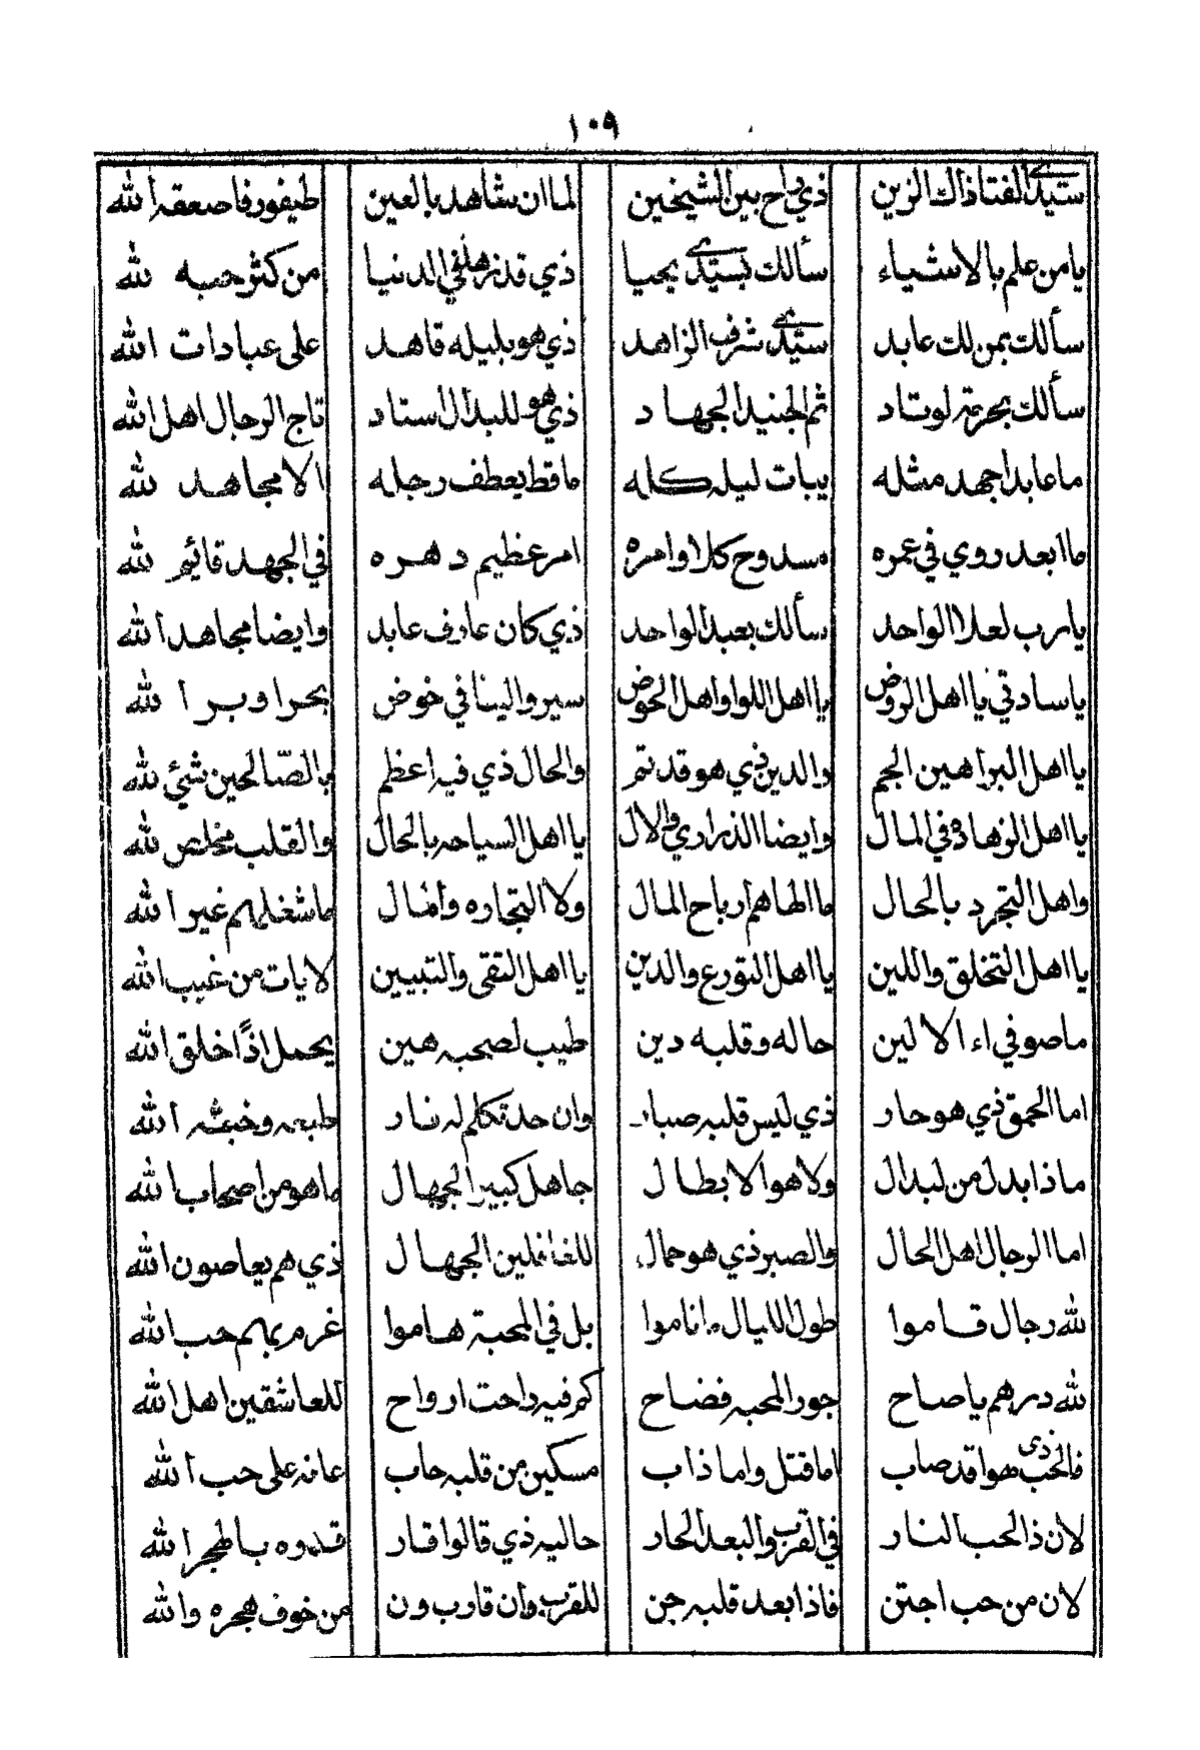 ١٠٩
سيدي الفتا ذاك الزين ذي راح بين الشيخين لما ان شاهد بالعين طيفور فاصعقه الله
يا من علم بالاشياء سألك بسيدي يحيا ذي قد زهد في الدنيا من كثر حبه لله
سألك بمن لك عابد سيدي شرف الزاهد ذي هو بليله قاهد على عبادات الله
سألك بحرمة لوتاد ثم الجنيد الجهاد ذي هو للبدال استاد تاج الرجال اهل الله
ما عابد اجهد مثله يبات ليله كله ما قط يعطف رجله الا مجاهد لله
ما ابعد روي في عمره مسدوح كلا وامره امر عظيم دهره في الجهد قائم لله
يا رب لعلا الواحد سألك بعبد الواحد ذي كان عارف عابد وايضا مجاهد الله
يا سادتي يا اهل الروض يا اهل اللوا واهل الحوض سيروا الينا في خوض بحرا وبرا لله
يا اهل البراهين الجم والدين ذي هو قد تم والحال ذي فيه اعظم بالصّالحين شئي لله
يا اهل الزهاده في المال وايضا الذراري والال يا اهل السياحه بالحال والقلب مخلص لله
واهل التجرد بالحال ما الهاهم ارباح المال ولا التجاره وامال ما شغلهم غير الله
يا اهل التخلق واللين يا اهل التورع والدين يا اهل التقى والتبيين لايات من غيب الله
ما صوفي اء الا لين حاله وقلبه دين طيب لصحبه هين يحمل اذًا خلق الله
اما الحمق ذي هو حار ذي ليس قلبه صبار وان حد تكلم له نار طبعه وخبثه الله
ما ذا بدل من لبدال ولا هو الا بطال جاهل كبير الجهال ما هو من اصحاب الله
اما الرجال اهل الحال والصبر ذي هو حمال للغافلين الجهال ذي هم يعاصون الله
لله رجال قاموا طول الليال ما ناموا بل في المحبة هاموا غرمريهم حب الله
لله درهم يا صاح جور المحبه فضاح كم فيه راحت ارواح للعاشقين اهل الله
فالحب ذي هو اقد صاب اما قتل واما ذاب مسكين من قلبه حاب عانه على حب الله
لان ذا الحب النار في القرب والبعد الحار حاليه ذي قالوا قار قدوه باطجر الله
لان من حب اجتن فاذا بعد قلبه جن للقرب وان قارب ون من خوف هجره والله